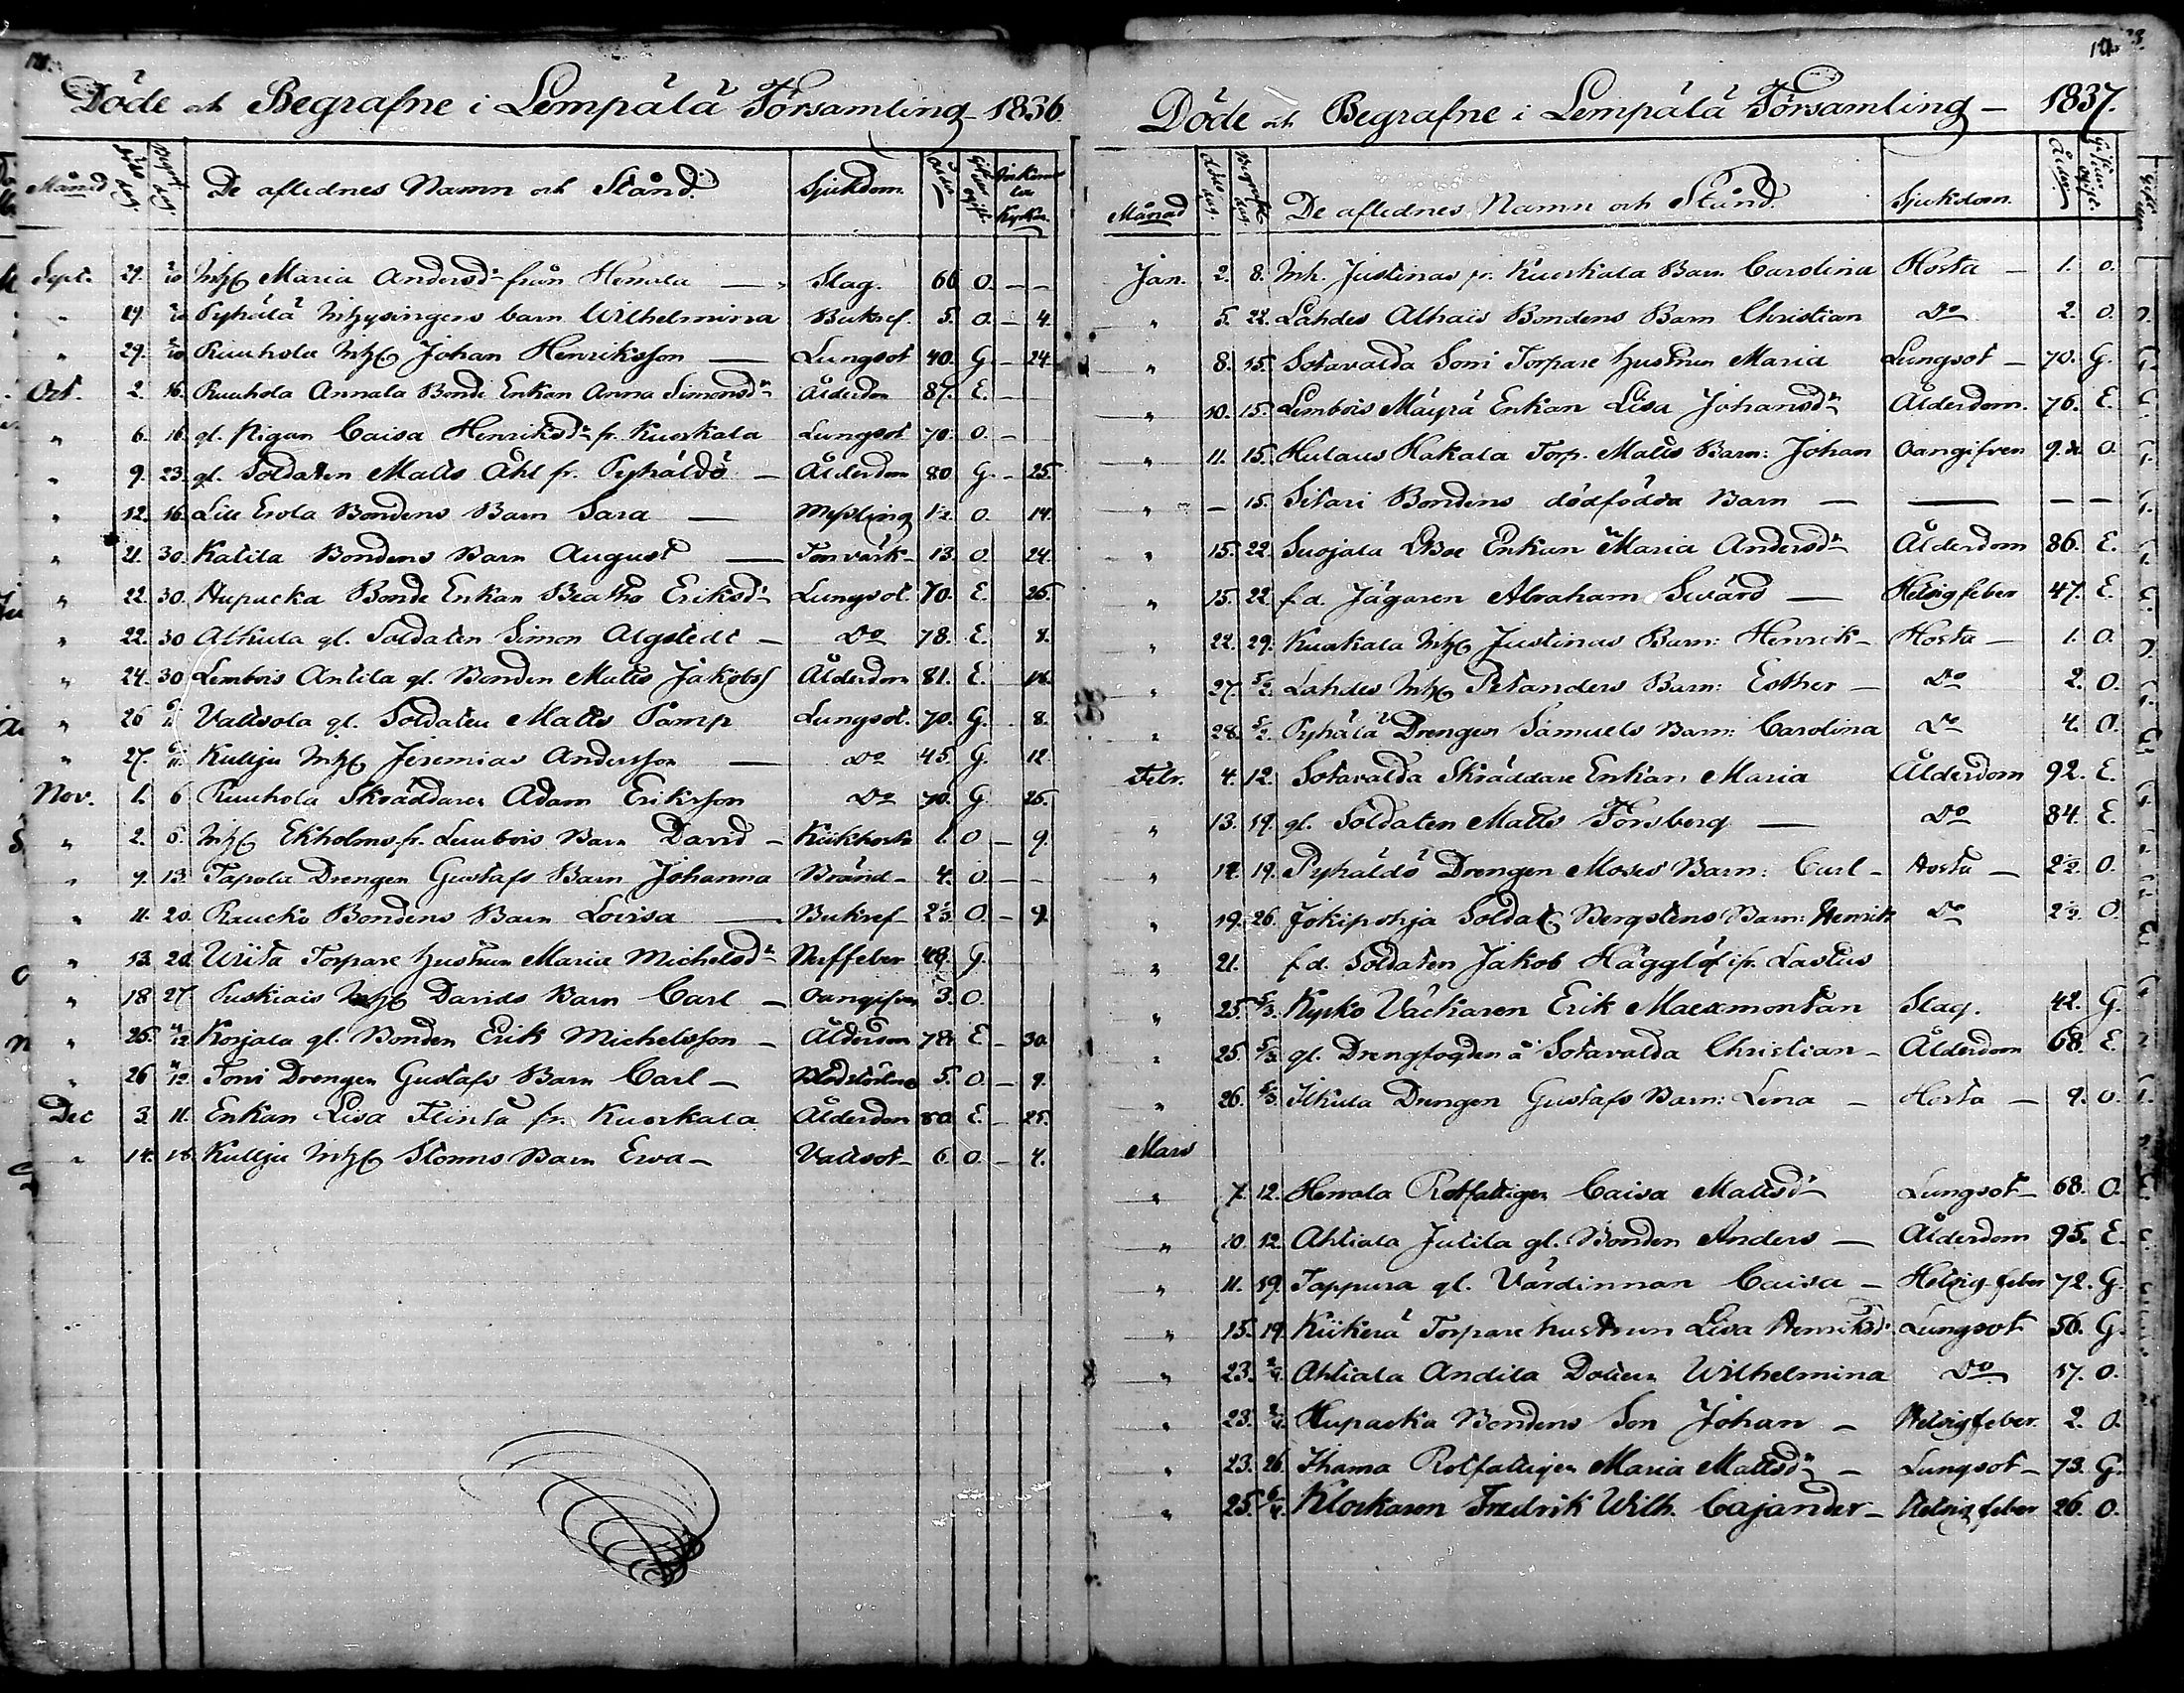 Döde och Begrafne i Lempälä Församling 1836.
Månad döds dag Begraf. dag De aflednes Namn och Stånd. Sjukdom. Ålder Gift eller ogift Kyrkan
Sept. 29. 2/10 Inhs Maria Andersdr från Hemala — Slag. 66 O. – –
" 29 2/10 Pyhälä Inhysingens barn Wilhelmina Bukref. 5. O. – 4.
" 29. 2/10 Ruuhola Inhs Johan Henriksson — Lungsot 40. G. – 24.
Oct. 2. 16. Ruuhola Annala Bonde Enkan Anna Simonsdr Ålderdom 87. E. –
" 6. 16. gl. Pigan Caisa Henriksdr fr. Kuorkala Lungsot 70. O. –
" 9. 23. gl. Soldaten Matts Åhl fr. Pyhäldö — Ålderdom 80 G. – 25.
" 12. 16. Lill Erola Bondens Barn Sara — Messling 1½ O. 14.
" 21. 30. Katila Bondens Barn August — Tonvärk – 13. O. 24.
" 22. 30. Hupacka Bonde Enkan Beatha Eriksdr Lungsot. 70. E. 25.
" 22. 30 Alkula gl. Soldaten Simon Algstedt — Do 78. E. 8.
" 24. 30 Lembois Antila gl. Bonden Matts Jakobss Ålderdom 81. E. 18.
" 26 6/11 Vattsola gl. Soldaten Matts Pamp Lungsot. 70. G. 8.
" 27. 6/11. Kullju Inhs Jeremias Andersson — Do 45. G. 12
Nov. 1. 6 Ruuhola Skräddaren Adam Eriksson Do 70. G. 25.
" 2. 6. Inhs Ekholms fr. Lembois Barn David – Kikhosta 1. O – 9.
" 9. 13. Tapola Drengen Gustafs Barn Johanna Bränd – 4. O. – –
" 11. 20. Raucko Bondens Barn Lovisa — Bukref 2⅓. O. – 9.
" 13. 20. Urita Torpare hustrun Maria Michelsdr Nerffeber 48. G.
" 18 27 Puskiais Inhs Davids Barn Carl — Oangifven 3. O.
" 25. 4/12 Korjala gl. Bonden Erik Michelsson — Ålderdom 78. E – 30.
" 26 4/12 Toni Drengen Gustafs Barn Carl — 5. O. – 9.
Dec 3. 11. Enkan Lisa Flinta fr. Kuorkala Ålderdom 80. E. – 25.
" 14. 18. Kullju Inhs Stoms Barn Ewa – Vattsot – 6. O. – 4.
Döde och Begrafne i Lempälä Församling – 1837.
Månad döds dag. Begrafn. dag De aflednes Namn och Stånd. Sjukdom. Ålder Gift eller ogift.
Jan. 2. 8. Inh. Justinas fr. Kuorkala Barn Carolina Hosta – 1. O.
" 5. 22. Lahdes Alhais Bondens Barn Christian Do 2. O.
" 8. 15. Sotavalda Soni Torpare hustrun Maria Lungsot – 70. G.
" 10. 15. Lembois Mäyrä Enkan Lisa Johansdr Ålderdom. 76. E.
" 11. 15. Hulaus Hakala Torp. Matts Barn: Johan Oangifven 9. O.
" – 15. Sitari Bondens dödfödda Barn — — – –
" 15. 22. Suojala Enkan Maria Andersdr Ålderdom 86. E.
" 15. 22 f.d. Jägaren Abraham Swärd — Hetsig feber 47. E.
" 22. 29. Kuorkala Inhs Justinas Barn: Henrik – Hosta – 1. O.
" 27. 5/2. Lahdes Inhs Petanders Barn: Esther – Do 2. O.
" 28. 5/2. Pyhälä Drengen Samuels Barn: Carolina Do 4. O.
Febr. 4. 12. Sotavalda Skräddare Enkan Maria Ålderdom 92. E.
" 13. 19. gl. Soldaten Matts Forsberg — Do 84. E.
" 14. 19. Pyhäldö Drengen Moses Barn: Carl – Hosta – 2½. O.
" 19. 26. Jokipohja Soldat Bergstens Barn: Henrik Do 2½. O.
" 21. f.d. Soldaten Jakob Hägglöf ifr. Lastus
" 25. 5/3. Kyrko Väckaren Erik Maexmontan Slag. 42. G.
" 25. 5/3. gl. Drengfogden å Sotavalda Christian – Ålderdom 68. E.
" 26. 5/3. Ilkula Drengen Gustafs Barn: Lena – Hosta – 9. O.
Mars
" 7. 12. Herrala Rotfattigen Caisa Mattsdr Lungsot – 68. O.
" 10. 12. Ahtiala Jutila gl. Bonden Anders — Ålderdom 95. E.
" 11. 19. Tappura gl. Värdinnan Caisa — Hetsig feber 72. G.
" 15. 19. Kiikerä Torpare hustrun Lisa Henriksdr Lungsot 56. G.
" 23. 2/4. Ahtiala Andila Dottern Wilhelmina Do 17. O.
" 23. 2/4. Hupacka Bondens Son Johan – Hetsigfeber. 2. O.
" 23. 26. Ihama Rotfattigen Maria Mattsdr – Lungsot – 73. G.
" 25. 6/4. Klockaren Fredrik Wilh. Cajander – Hetsig feber 26. O.